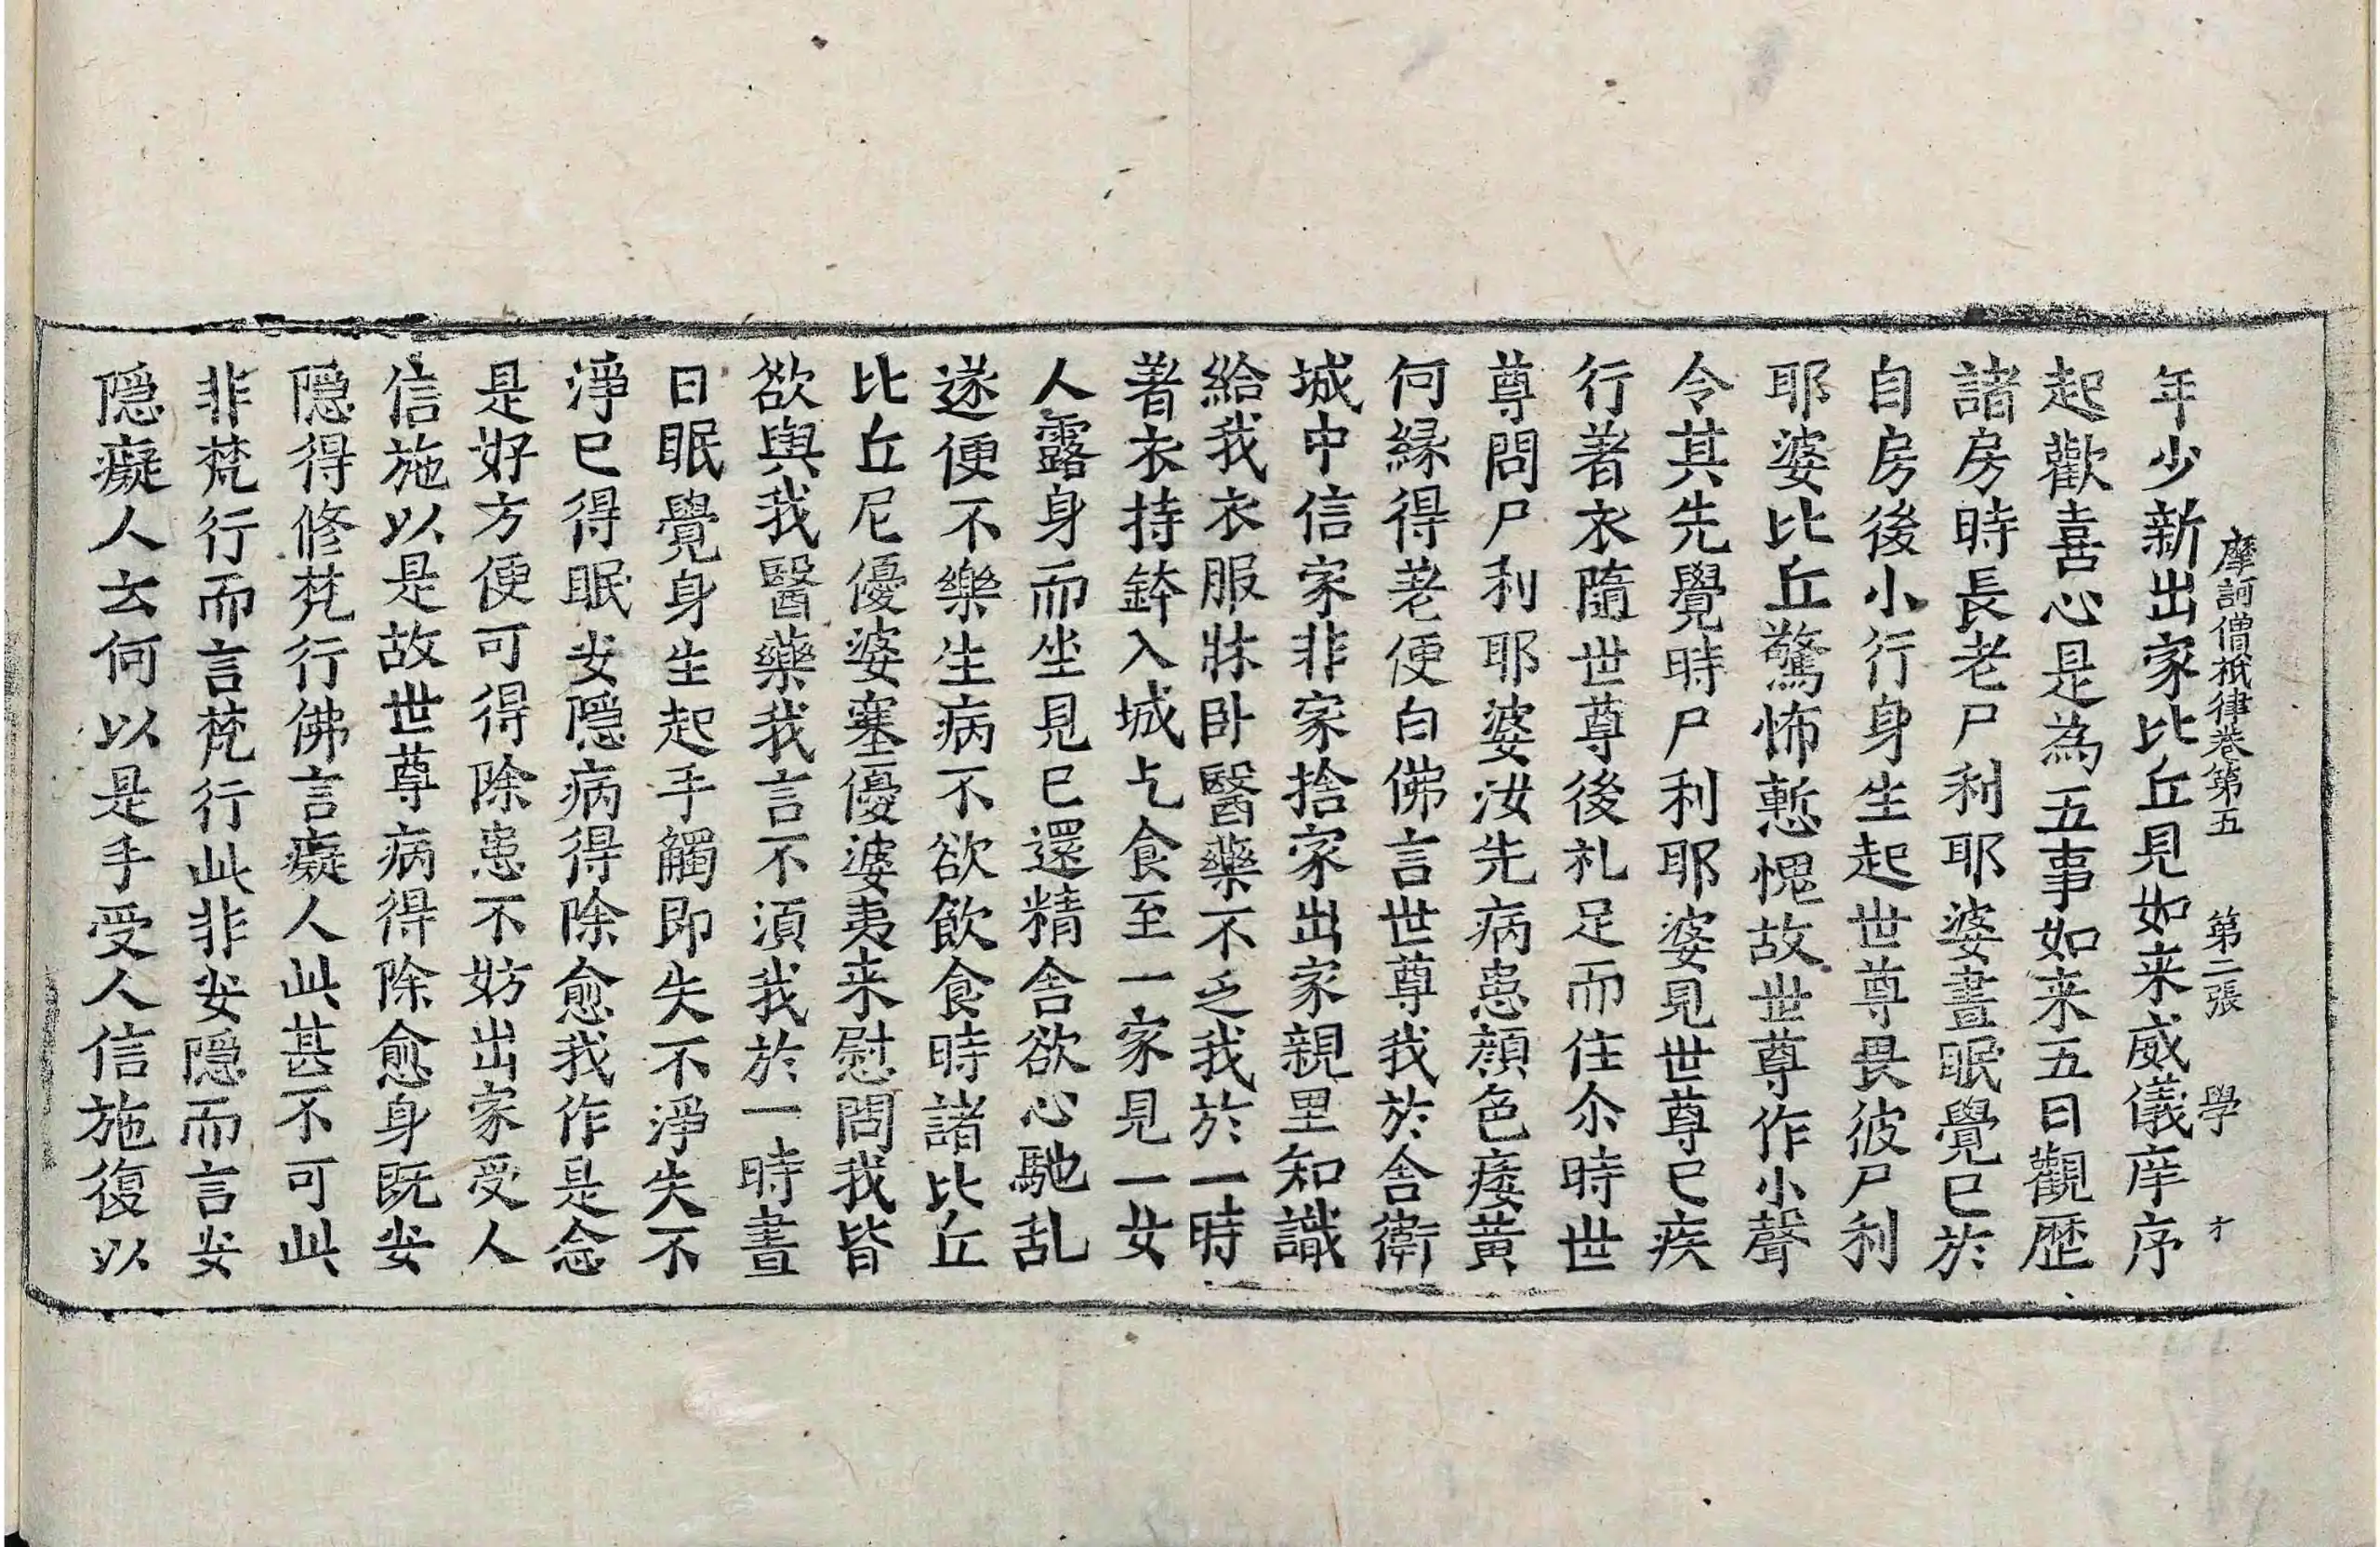 摩訶僧祇律卷第五 第二張 學 才
年少新出家比丘見如来威儀庠序
起歡喜心是為五事如来五日觀歴
諸房時長老尸利耶婆晝眠覺已於
自房後小行身生起世尊畏彼尸利
耶婆比丘驚怖慙愧故世尊作小聲
令其先覺時尸利耶婆見世尊已疾
行著衣隨世尊後礼足而住尒時世
尊問尸利耶婆汝先病患顔色痿黄
何縁得老便白佛言世尊我於舎衛
城中信家非家捨家出家親里知識
給我衣服牀卧醫藥不乏我於一時
著衣持鉢入城乞食至一家見一女
人露身而坐見已還精舎欲心馳乱
遂便不樂生病不欲飲食時諸比丘
比丘尼優婆塞優婆夷来慰問我皆
欲與我醫藥我言不湏我於一時晝
日眠覺身生起手觸即失不淨失不
淨已得眠安隠病得除愈我作是念
是好方便可得除患不妨出家受人
信施以是故世尊病得除愈身既安
隠得修梵行佛言癡人此甚不可此
非梵行而言梵行此非安隠而言安
隠癡人云何以是手受人信施復以